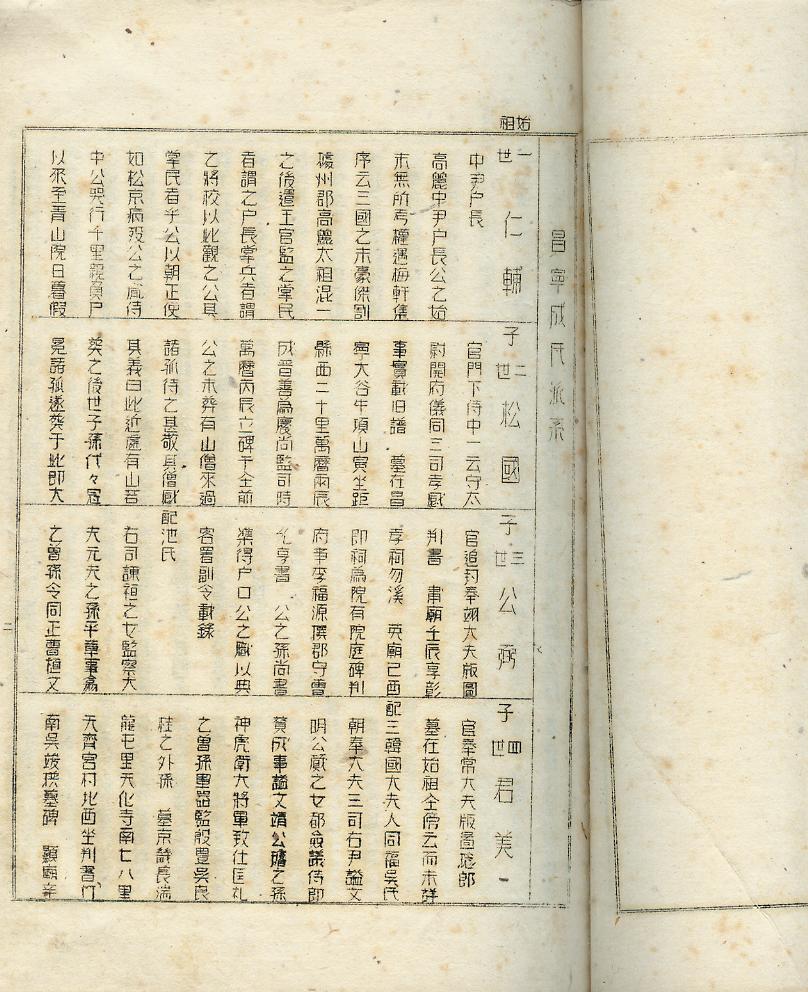 始祖
昌寧成氏派系
一世 仁輔
中尹户長
高麗中尹户長公之始
末無所考權遇梅軒集
序云三國之末豪傑割
據州郡高麗太祖混一
之後遣王官監之掌民
者謂之户長掌兵者謂
之將校以此觀之公其
掌民者乎公以朝正使
如松京病歿公之胤侍
中公哭行千里親負尸
以來至青山院日暮假
子 二世 松國
官門下侍中一云守太
尉開府儀同三司孝感
事實載旧譜 墓在昌
寧大谷牛項山寅坐距
縣西二十里萬曆丙辰
成晋善為慶尚監司時
萬曆丙辰立碑于仝前
公之未葬有山僧來過
諸孤待之甚敬其僧感
其義曰此近處有山若
葬之後世子孫代々冠
冕諸孤遂葬于此即大
子 三世 公弼
官追封奉翊大夫版圖
判書 肅廟壬辰享彰
孝祠勿溪 英廟己酉
即祠為院有院庭碑判
府事李福源撰郡守曹
允亨書 公之孫尚書
樂得户口公之職以典
客署副令載錄
配池氏
右司諫桓之女監察大
夫元夫之孫平章事翕
之曾孫令同正曹植文
子 四世 君美
官奉常大夫版圖總郎
墓在始祖仝傍云而未詳
配三韓國大夫人同福吳氏
朝奉大夫三司右尹諡文
明公廕之女都僉議侍郎
贊成事諡文靖公璿之孫
神虎衛大將軍致仕匡札
之曾孫軍器監殷豊吳良
桂之外孫 墓京畿長湍
龍屯里天化寺南七八里
天齊宮村地酉坐判書竹
南吳竣撰墓碑 顯廟辛
二